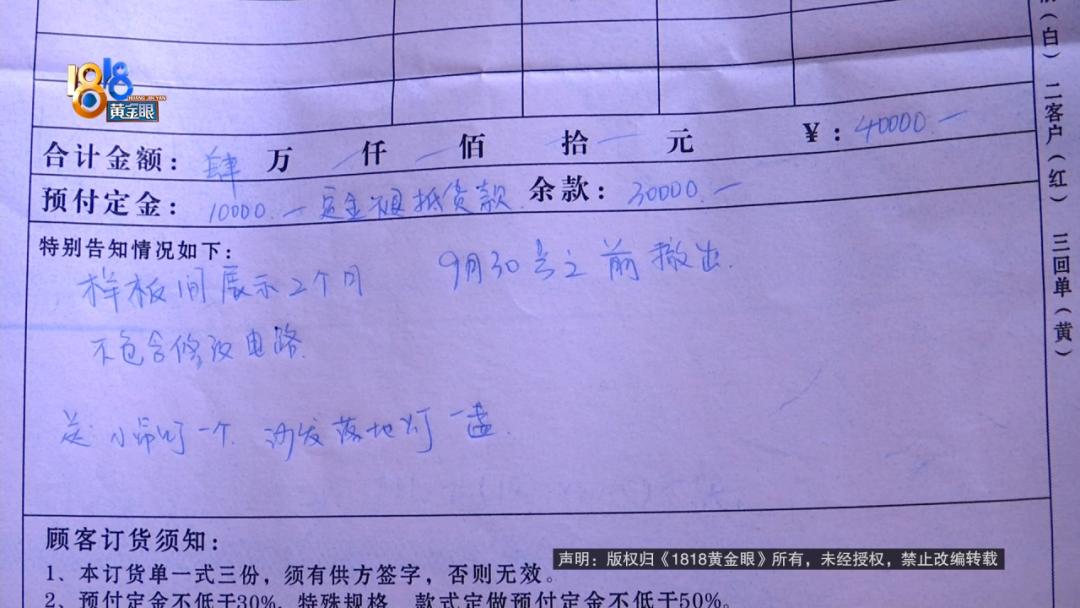 1818
HUANG JIN YAN
黄金眼
合计金额: 肆 万 一 仟 一 佰 一 拾 一 元 ¥: 40000.一
预付定金: 10000.一 定金 抵货款 余款: 30000.一
特别告知情况如下:
样板间展示2个月 9月30号之前撤出.
不包含修改电路.
送:小吊灯一个 沙发落地灯一盏.
顾客订货须知:
1、本订货单一式三份,须有供方签字,否则无效。
2、预付定金不低于30%, 特殊规格、款式定做预付定金不低于50%。
(白) 二客户(红) 三回单(黄)
声明:版权归《1818黄金眼》所有,未经授权,禁止改编转载